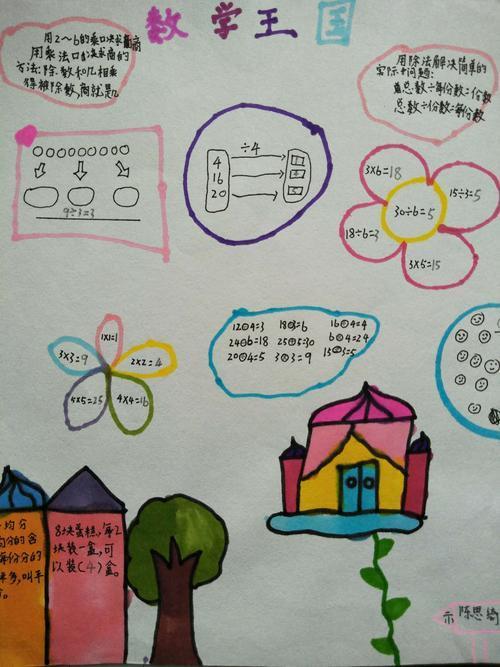 数学王国
用2～6的乘口决求商
用乘法口决求商的
方法:除数和几相乘
得被除数,商就是几
用除法解决简单的
实际问题:
总数÷每份数=份数
总数÷份数=每份数
9÷3=3
÷4
4
16
20
3×6=18
15÷3=5
30÷6=5
18÷6=3
3×5=15
1×1=1
3×3=9
2×2=4
5×5=25
4×4=16
12÷4=3 18÷3=6 16÷4=4
24÷6=18 25+5=30 6×4=24
20÷4=5 3×3=9 15÷3=5
均分
8块蛋糕,每2
块装一盒,可
以装(4)盒。
每份分的
多,叫平
示 陈思绮